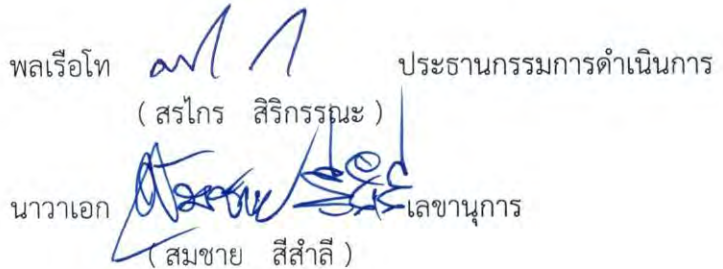 พลเรือโท ประธานกรรมการดำเนินการ
( สรไกร สิริกรรณะ )
นาวาเอก เลขานุการ
( สมชาย สีสำลี )